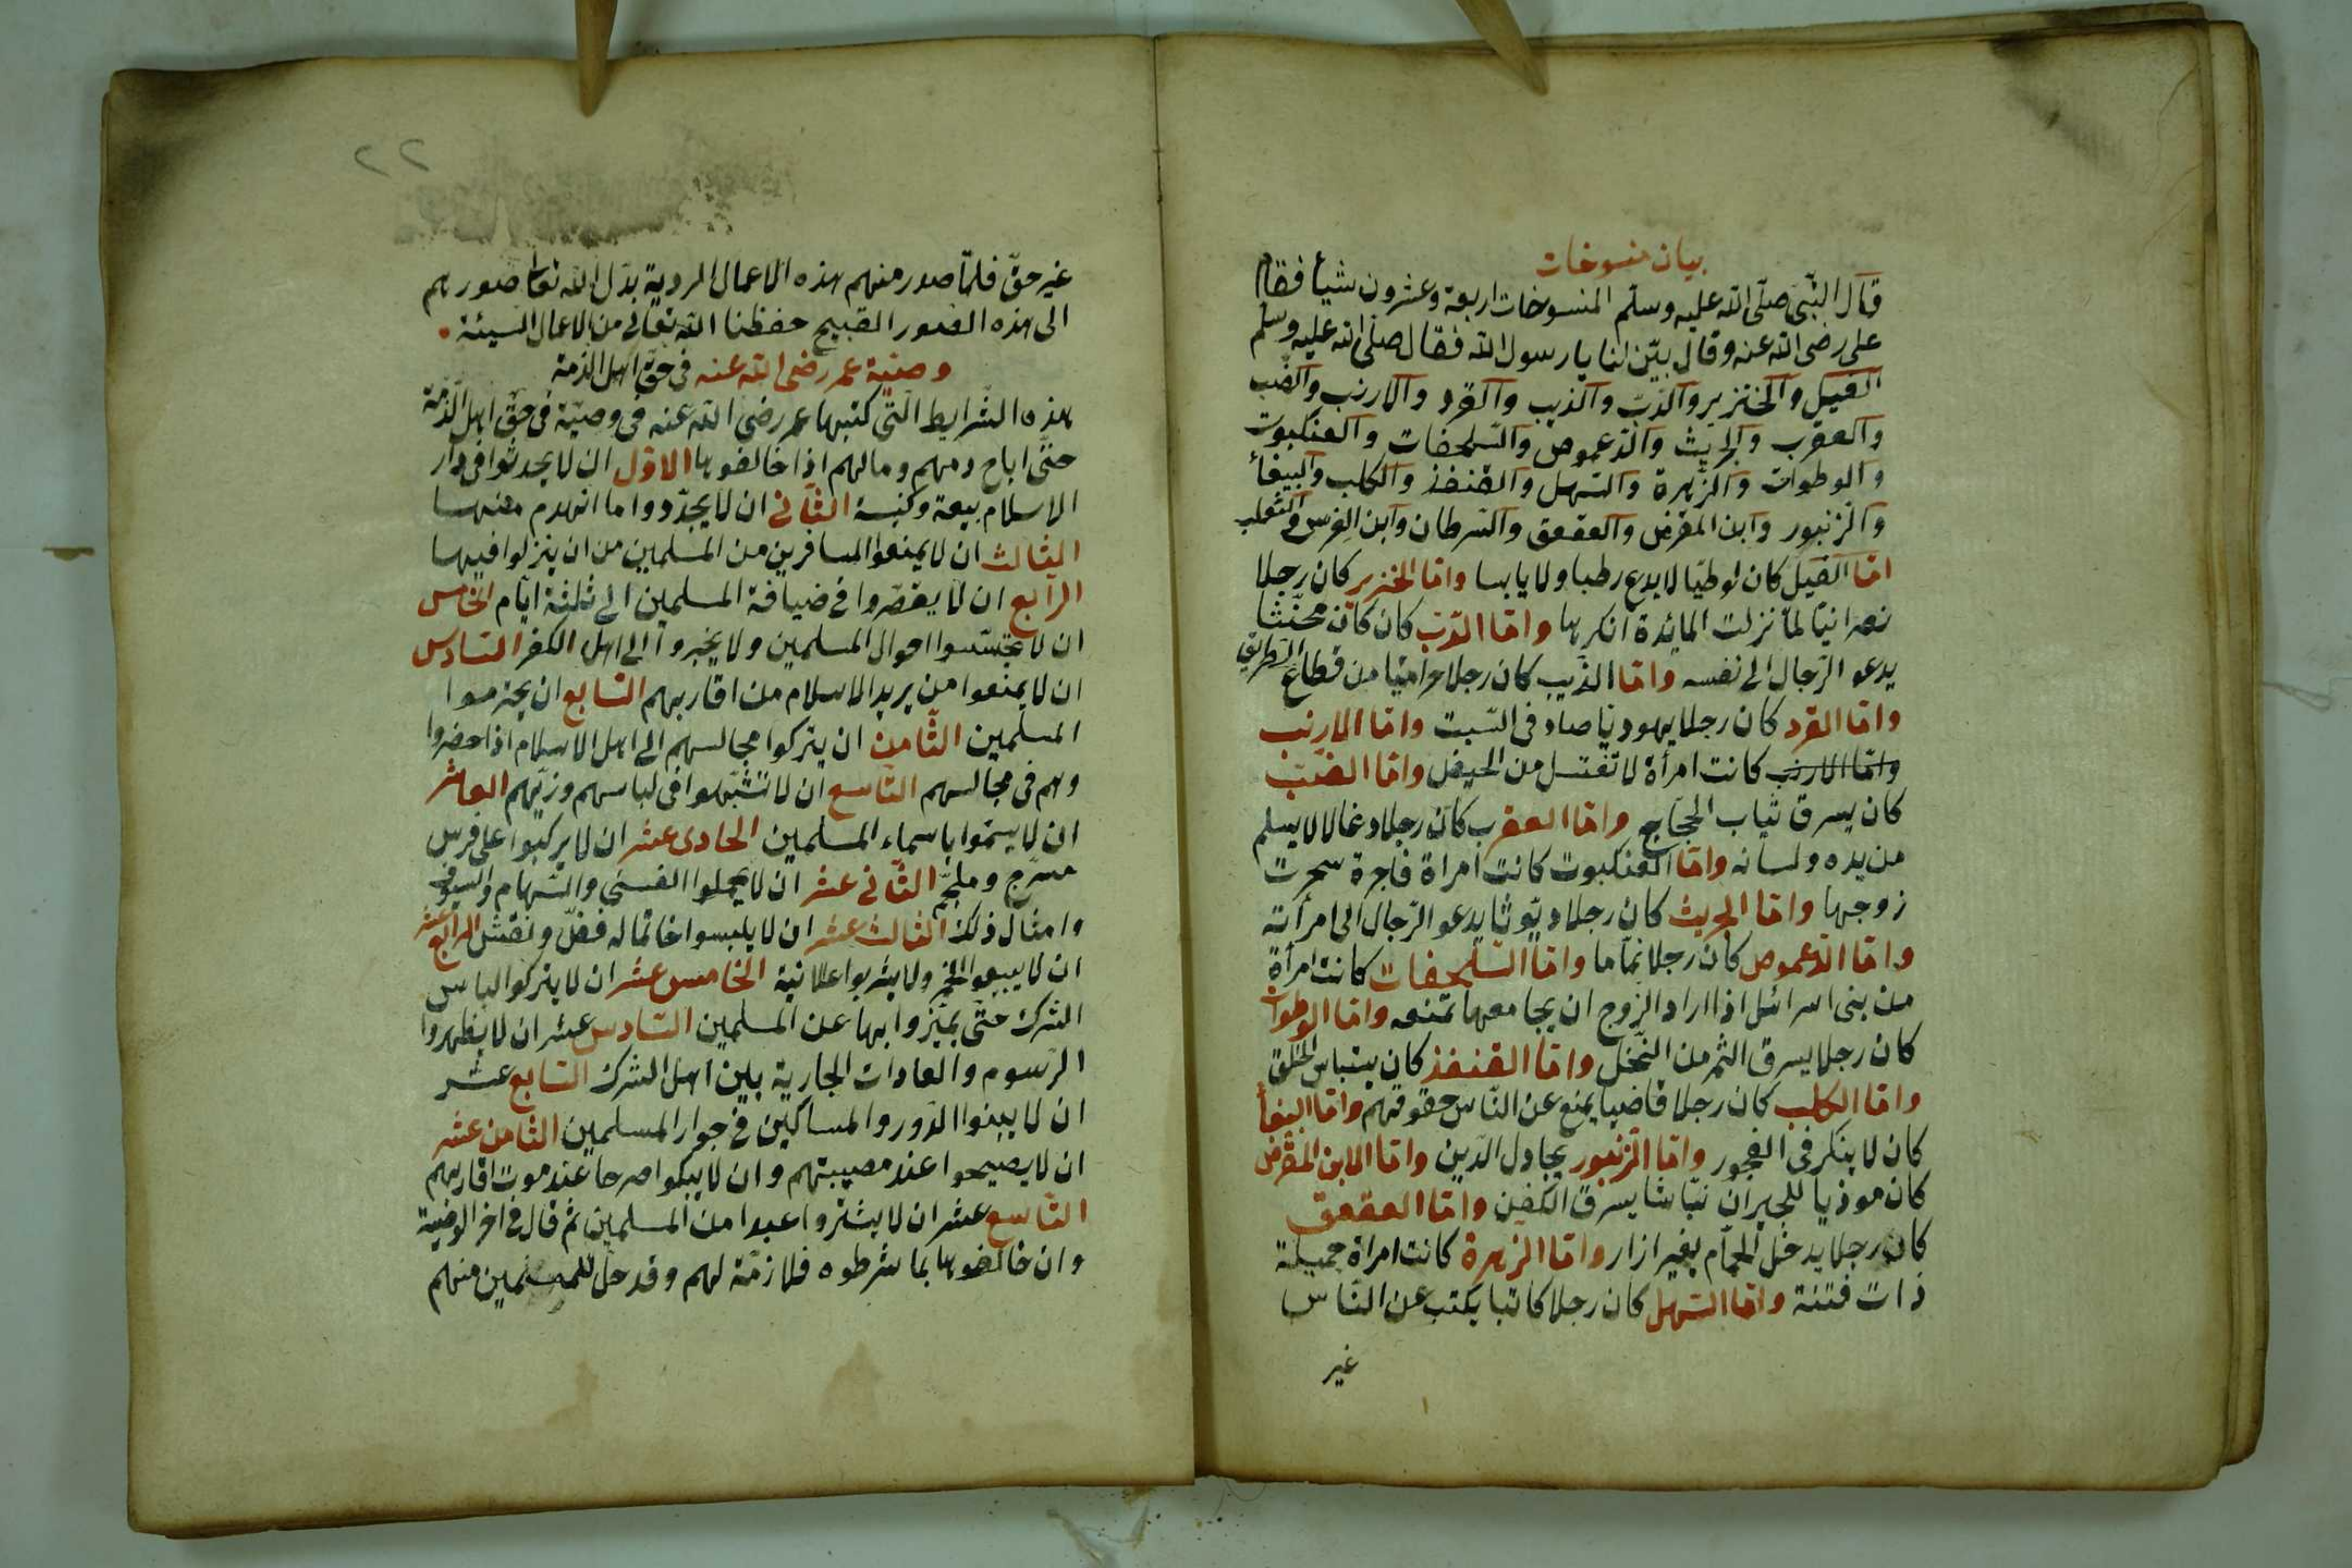 بيان منسوخات
قال النبى صلى الله عليه وسلم المنسوخات اربعة وعشرون شيأ فقام
على رضى الله عنه وقال بيّن لنا يا رسول الله فقال صلى الله عليه وسلم
الفيل والخنزير والدب والذيب والقرد والارنب والضب
والعقرب والجريث والدعموص والسلحفات والعنكبوت
والوطوات والزهرة والسهل والقنفذ والكلب والببغأ
والزنبور وابن المقرض والعقعق والسرطان وابن الفرس والثعلب
امّا الفيل كان لوطيّا لا يدع رطبا ولا يابسا وامّا الخنزير كان رجلا
نصرانيّا لمّا نزلت المائدة انكرها وامّا الدّبّ كان كان مخنّثا
يدعو الرّجال الى نفسه وامّا الذّيب كان رجلا حراميّا من قطاع الطريق
وامّا القرد كان رجلا يهوديا صاد فى السّبت وامّا الارنب
وامّا الارنب كانت امرأة لا تغتسل من الحيض وامّا الضّبّ
كان يسرق ثياب الحجّاج وامّا العقرب كان رجلا دغالا لا يسلم
من يده ولسانه وامّا العنكبوت كانت امراة فاجرة سحرت
زوجها وامّا الجريث كان رجلا ديّوثا يدعو الرّجال الى امرأته
وامّا الدّعموص كان رجلا نمّاما وامّا السّلحفات كانت امرأة
من بنى اسرائل اذا اراد الزّوج ان يجامعها تمنعه وامّا الوطوات
كان رجلا يسرق الثمر من النّخل وامّا القنفذ كان الخلق
وامّا الكلب كان رجلا قاضيا يمنع عن النّاس حقوقهم وامّا الببغأ
كان لا ينكر فى الفجور وامّا الزّنبور يجادل الدّين وامّا الابن المقرض
كان موذيا للجيران نبّاشا يسرق الكفن وامّا العقعق
كان رجلا يدخل الحمّام بغير ازار وامّا الزّهرة كانت امراة جميلة
ذات فتنة وامّا السّهل كان رجلا كاتبا يكتب عن النّاس
غير
٢٢
غير حقّ فلمّا صدر منهم هذه الاعمال الردية بدّل الله تعا صورهم
الى هذه الصور القبيح حفظنا الله تعالى من الاعمال السيئة
وصيّة عمر رضى الله عنه فى حقّ اهل الذمة
هذه الشّرايط الّتى كتبها عمر رضى الله عنه فى وصيّة فى حقّ اهل الذّمّة
حتّى اباح دمهم ومالهم اذا خالفوها الاوّل ان لا يحدثوا فى دار
الاسلام بيعة وكنيسة الثّانى ان لا يجدّدوا ما انهدم منها
الثالث ان لا يمنعوا المسافرين من المسلمين من ان ينزلوا فيها
الرّابع ان لا يقصّروا فى ضيافة المسلمين الى ثلثة ايّام الخامس
ان لا يجتسّسوا احوال المسلمين ولا يخبروا الى اهل الكفر السّادس
ان لا يمنعوا من يريد الاسلام من اقاربهم السّابع ان يحترموا
المسلمين الثّامن ان يتركوا مجالسهم الى اهل الاسلام اذا حضروا
وهم فى مجالسهم التّاسع ان لا تشبّهوا فى لباسهم وزيّهم العاشر
ان لا يسمّوا باسماء المسلمين الحادى عشر ان لا يركبوا على فرس
مسرّج وملجّم الثّانى عشر ان لا يحملوا القسىّ والسّهام والسيوف
وامثال ذلك الثالث عشر ان لا يلبسوا خاتما له فصّ ونقش الرّابع عشر
ان لا يبيعوا الخمر ولا يشربوا علانية الخامس عشر ان لا يتركوا الباس
الشرك حتّى يميّزوا بها عن المسلمين السّادس عشر ان لا يظهروا
الرّسوم والعادات الجارية بين اهل الشرك السّابع عشر
ان لا يبنوا الدّور والمساكين فى جوار المسلمين الثّامن عشر
ان لا يصيحوا عند مصيبتهم وان لا يبكوا صرحا عند موت اقاربهم
التّاسع عشر ان لا يشتروا عبدا من المسلمين ثمّ قال فى اخر الوصية
وان خالفوها بما شرطوه فلا زمّة لهم وقد حلّ للمسلمين منهم